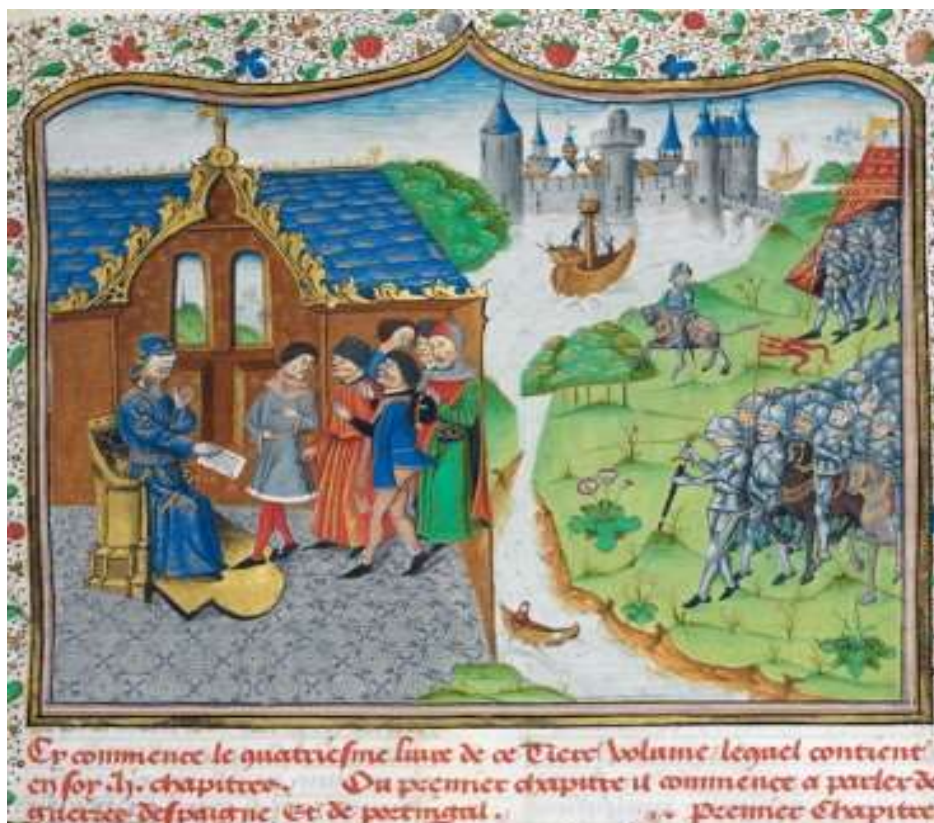 Cy commence le quatriesme livre de ce Tiers volume lequel contient
en soy .lj. chapitres. Ou premier chapitre il commence a parler de
guerres despaigne Et de portingal. Premier Chapitre